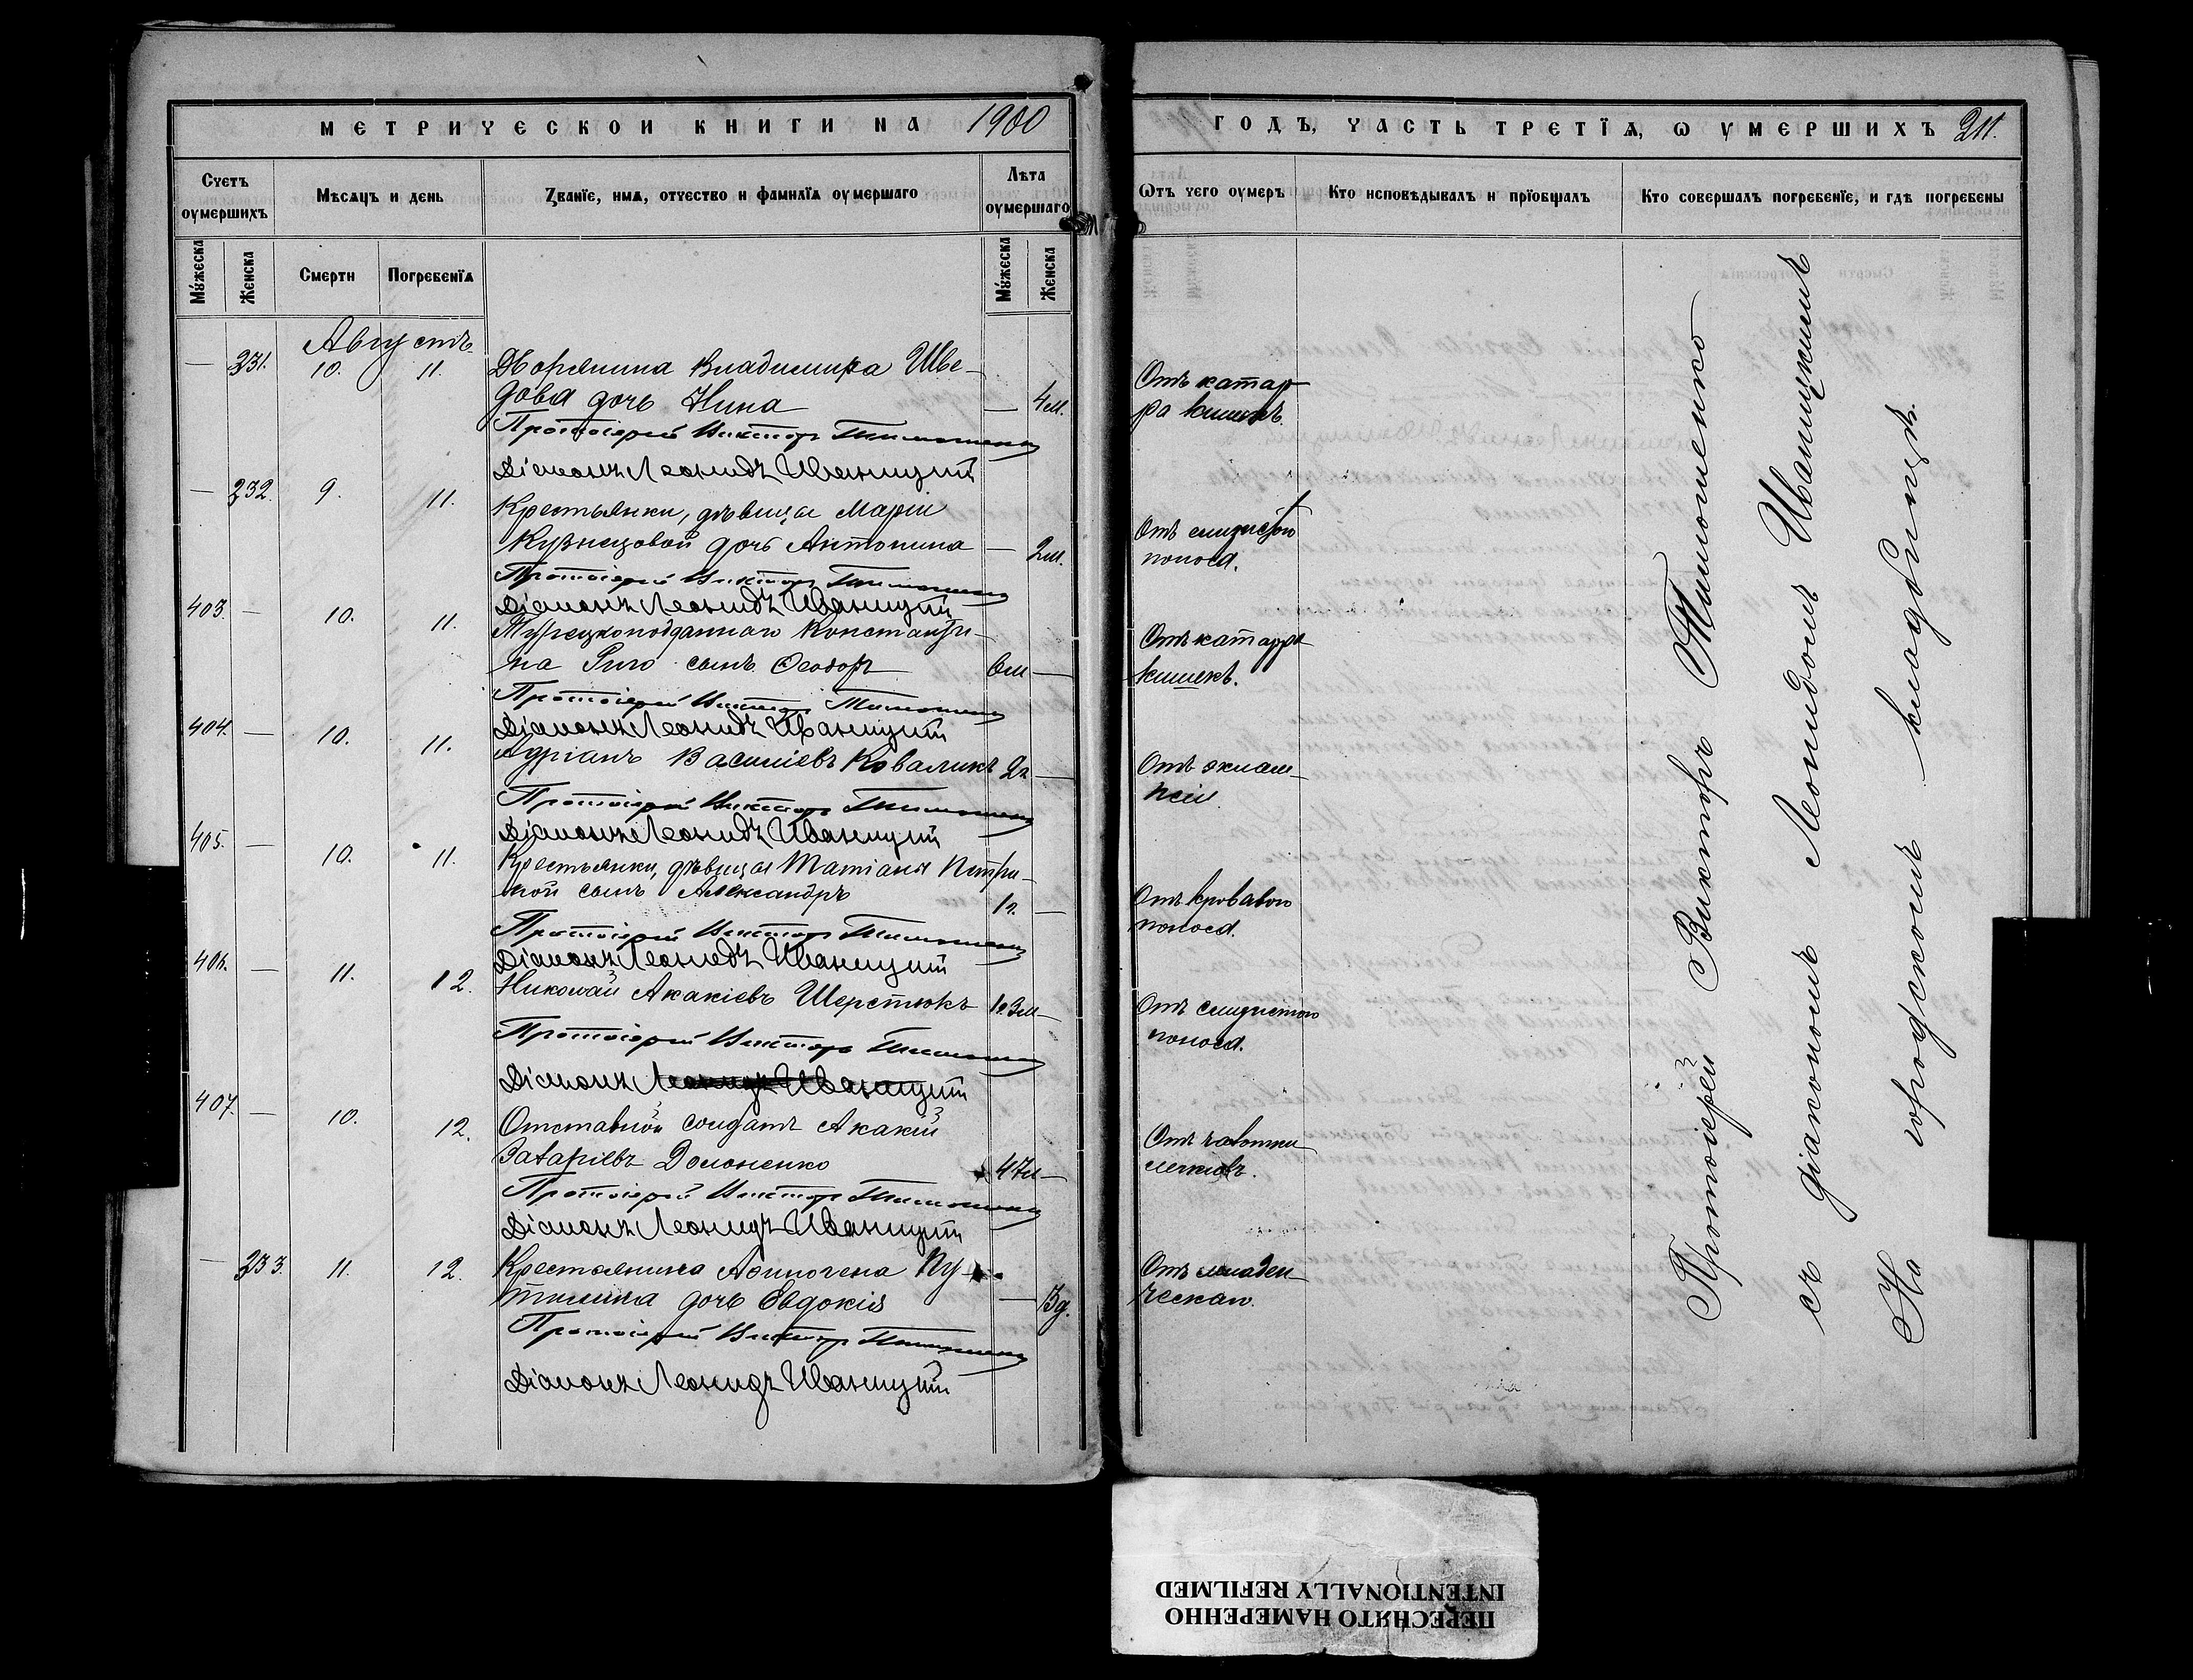 МЕТРИЧЕСКОИ КНИГИ НА 1900
Счетъ оумершихъ
Мѣсяцъ и день
Званіе, имя, отчество и фамилія оумершаго
Лѣта оумершаго
Мужеска
Женска
Смерти
Погребенїя
Мужеска
Женска
Августъ
— 231. 10. 11. Дворянина Владимира Шве-
дова дочь Нина — 4м.
Протоіерей Викторъ Тимошенко
Діаконъ Леонидъ Иваницкій
— 232. 9. 11. Крестьянки, дѣвицы Маріи
Кузнецовой дочь Антонина — 2м.
Протоіерей Викторъ Тимошенко
Діаконъ Леонидъ Иваницкій
403. — 10. 11. Турецкоподданнаго Константи-
на сынъ Ѳеодоръ 6м —
Протоіерей Викторъ Тимошенко
Діаконъ Леонидъ Иваницкій
404. — 10. 11. Адріанъ Василіевъ Коваликъ 2г —
Протоіерей Викторъ Тимошенко
Діаконъ Леонидъ Иваницкій
405. — 10. 11. Крестьянки, дѣвицы Татіаны
сынъ Александръ 1г. —
Протоіерей Викторъ Тимошенко
Діаконъ Леонидъ Иваницкій
406. — 11. 12. Николай Акакіевъ Шерстюкъ 1г.3м —
Протоіерей Викторъ Тимошенко
Діаконъ Леонидъ Иваницкій
407. — 10. 12. Отставной солдатъ Акакій
Захаріевъ Долоненко 47л —
Протоіерей Викторъ Тимошенко
Діаконъ Леонидъ Иваницкій
— 233. 11. 12. Крестьянина Аѳиногена Пу-
тилина дочь Евдокія — 13д.
Протоіерей Викторъ Тимошенко
Діаконъ Леонидъ Иваницкій
ГОДЪ, ЧАСТЬ ТРЕТІЯ, Ѡ ОУМЕРШИХЪ 211.
Ѿтъ чего оумеръ
Кто исповѣдывалъ и прїобщалъ
Кто совершалъ погребенїе, и гдѣ погребены
Отъ катар-
ра кишекъ.
Отъ слизистого
поноса.
Отъ катарра
кишекъ.
Отъ эклам-
псіи.
Отъ кроваваго
поноса.
Отъ слизистого
поноса.
Отъ чахотки
легкихъ.
Отъ младен-
ческой.
Протоіерей Викторъ Тимошенко
съ діакономъ Леонидомъ Иваницкимъ
На городскомъ кладбищѣ.
ПЕРЕСНЯТО НАМЕРЕННО
INTENTIONALLY REFILMED